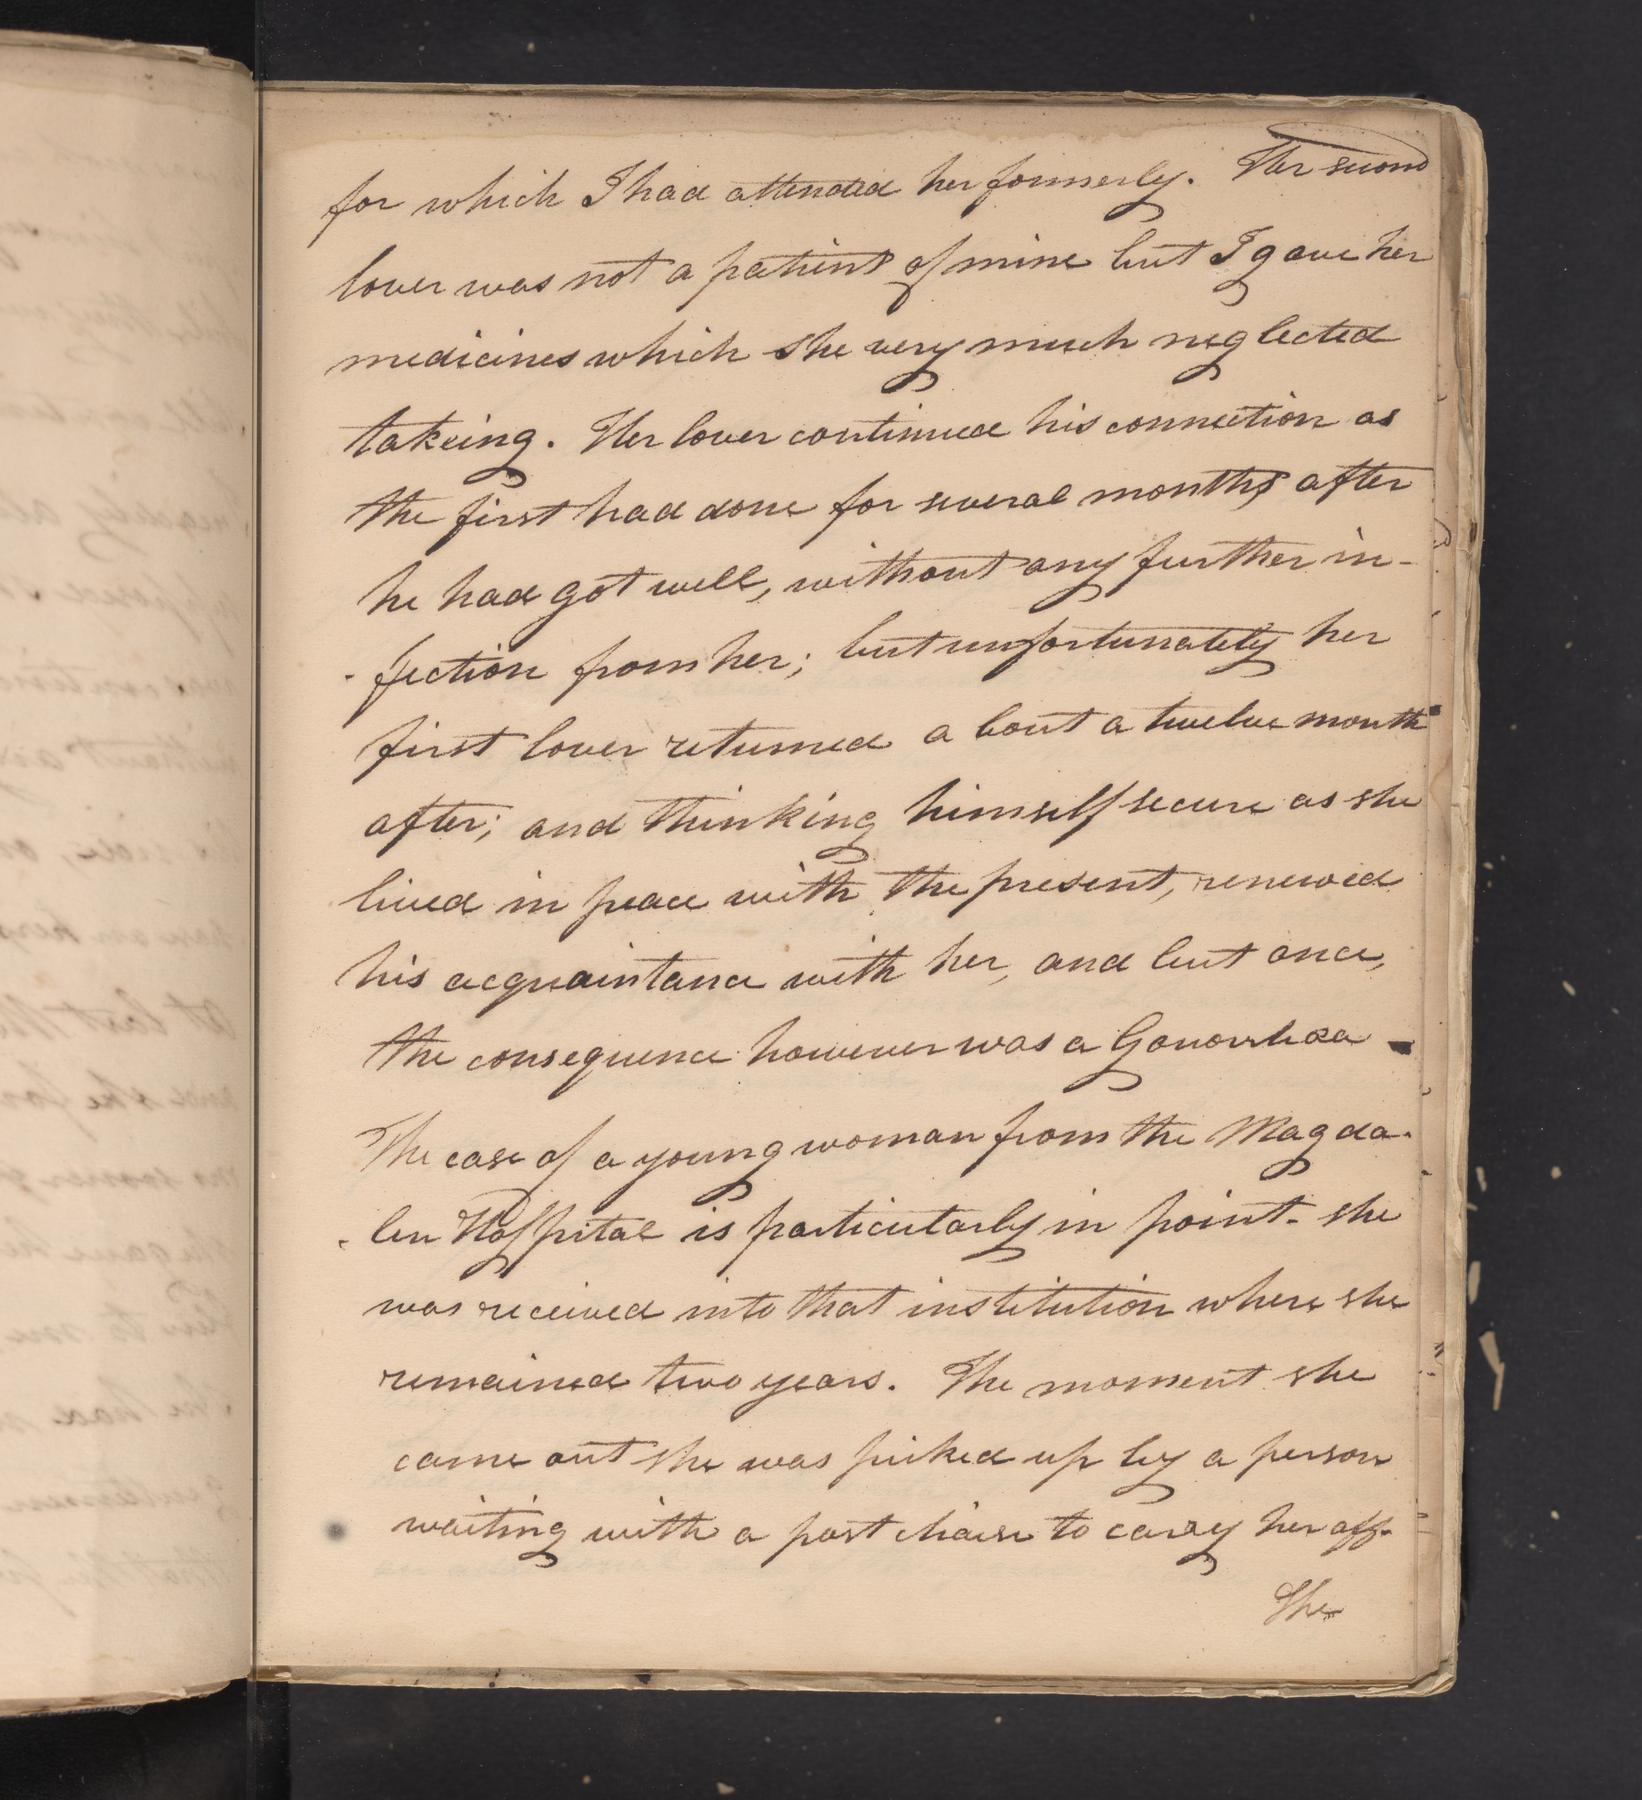 for which I had attended her formerly. Her second
lover was not a patient of mine but I gave her
medicines which she very much neglected
takeing. Her lover continued his connection as
the first had done for several months after
he had got well, without any further in-
-fection from her; but unfortunately her
first lover returned a bout a twelve month
after; and thinking himself secure as she
lived in peace with the present, renewed
his acquaintance with her, and but once,
the consequence however was a Gonorrhoea -
The case of a young woman from the Magda-
-len Hospital is particularly in point - she
was received into that institution where she
remained two years. The moment she
came out she was picked up by a person
waiting with a post chaise to carry her off.
She